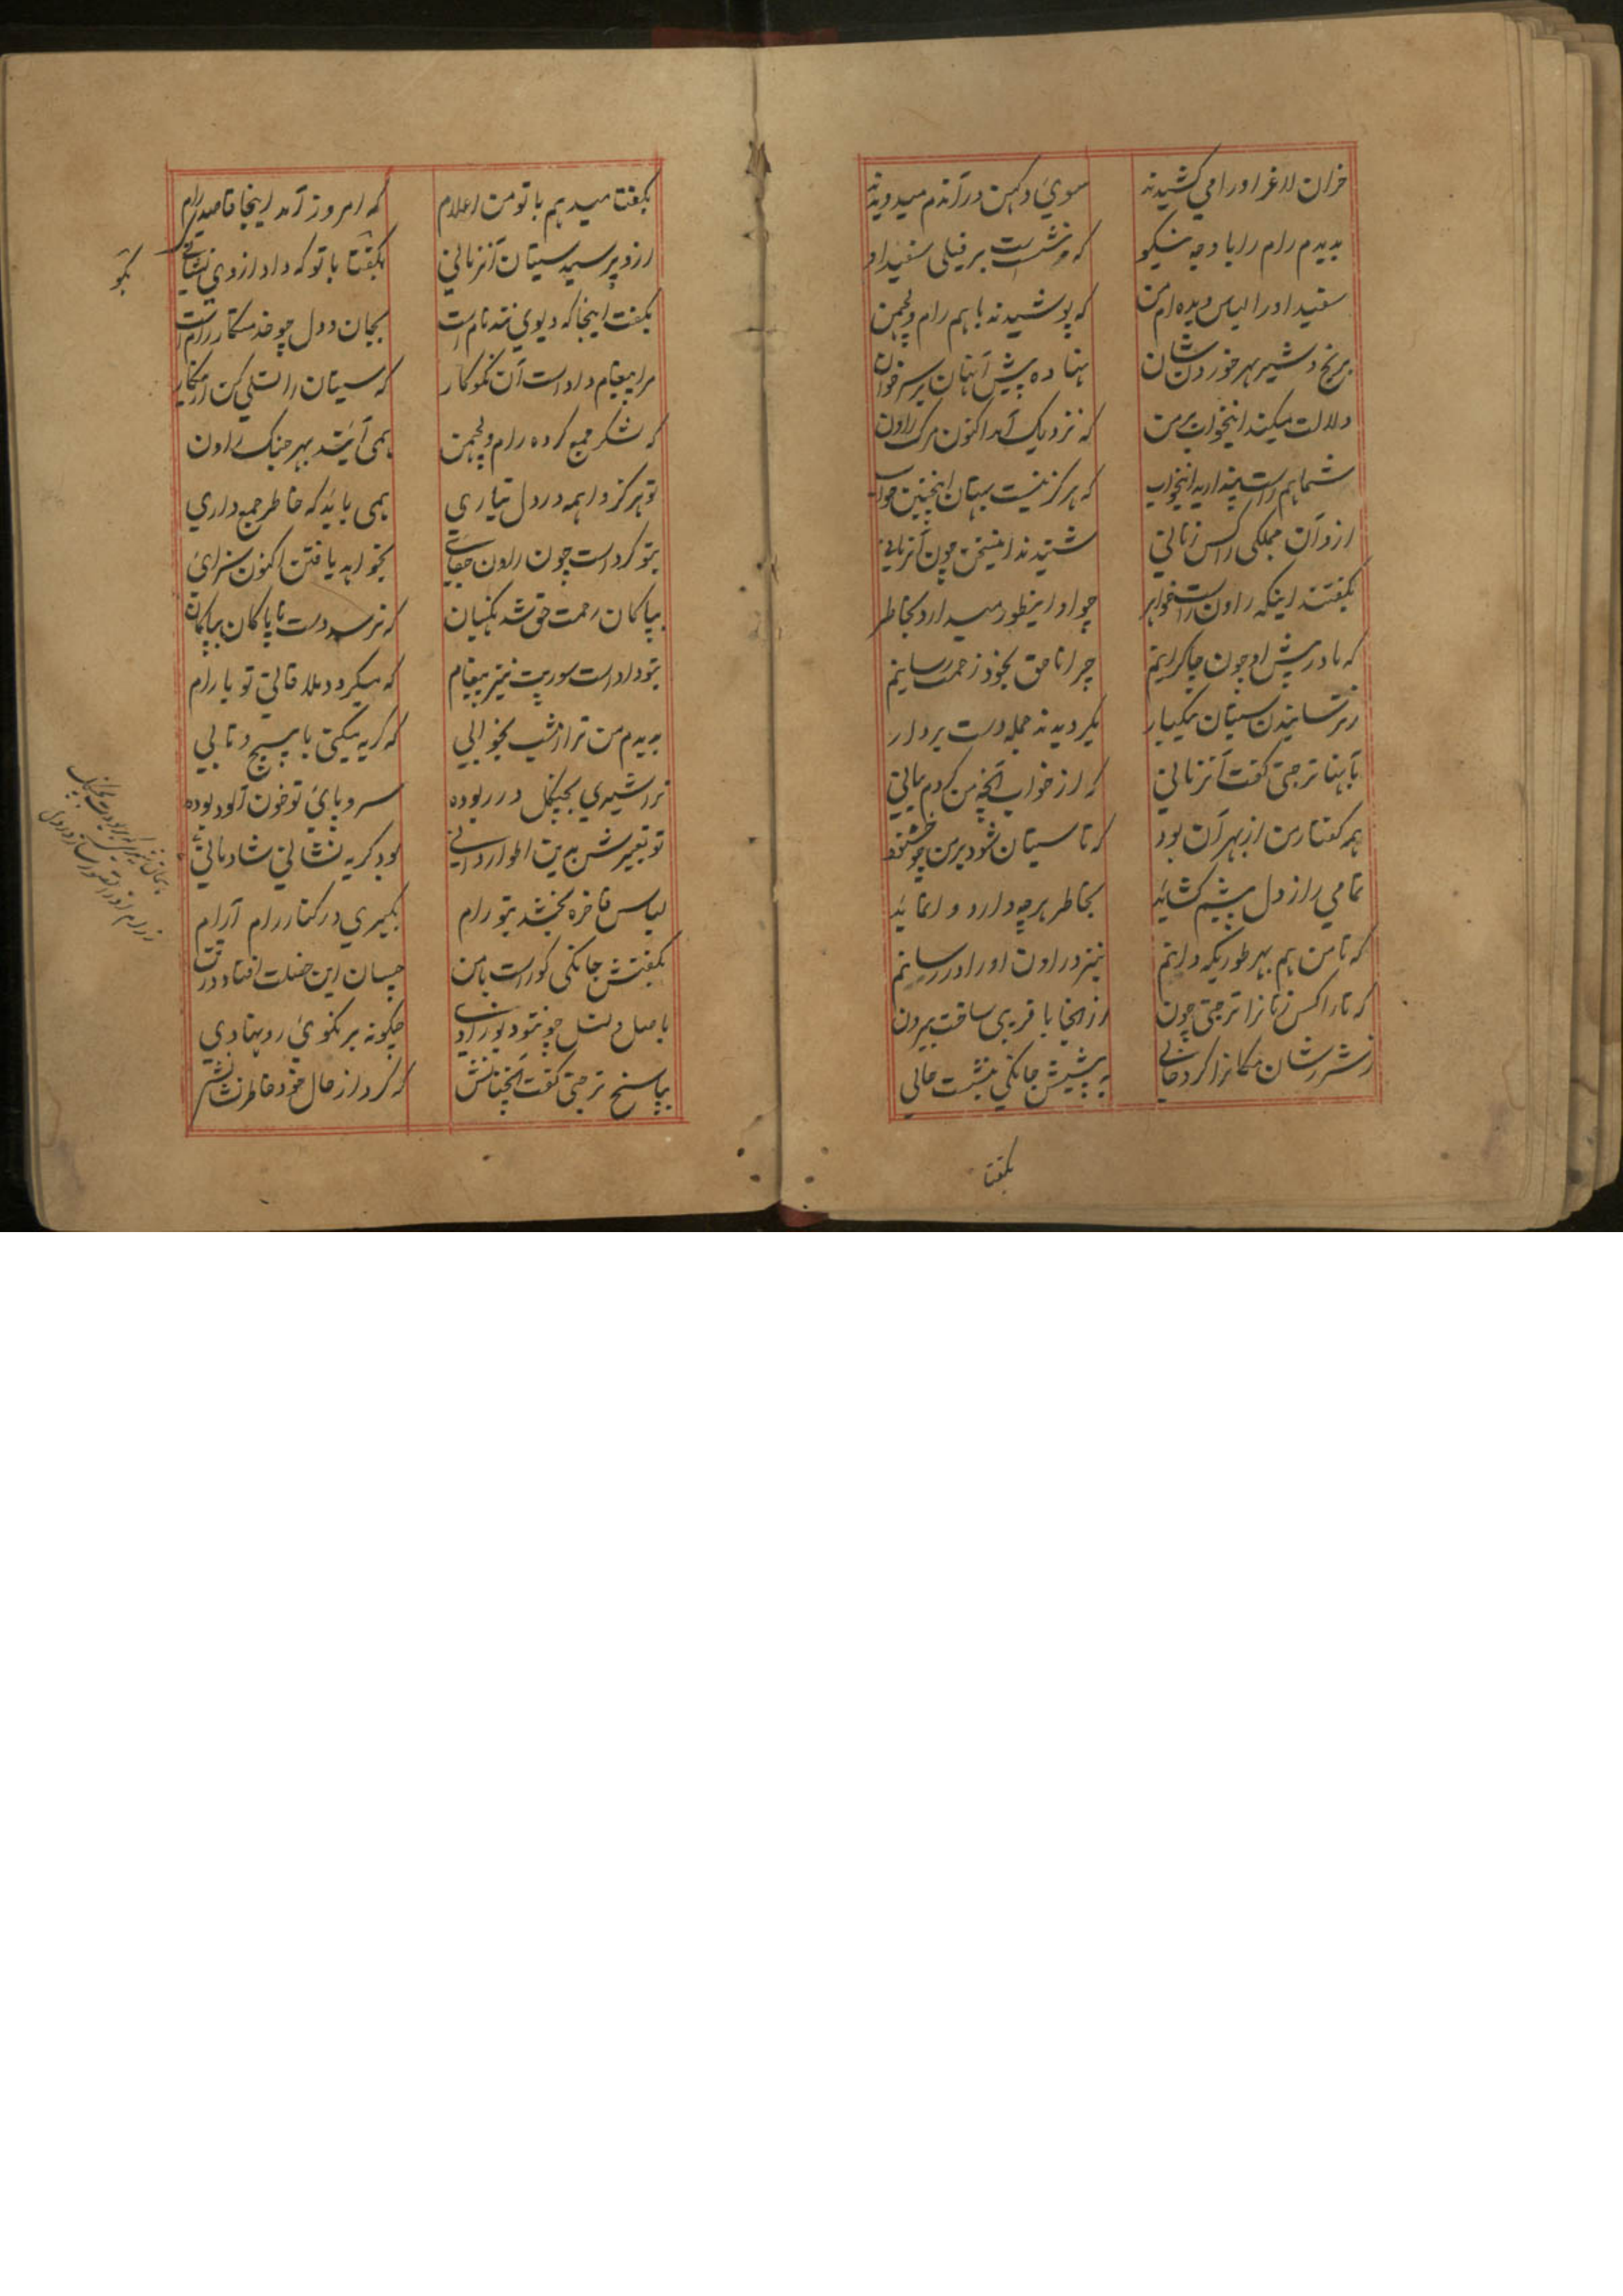 خران لاغر او را می کشیدند سوی دکهن در آندم میدویدند
بدیدم رام را با وجه نیکو که بنشست بر فیلی سفید او
سفید او را لباس دیده ام من که پوشیدند باهم رام و لچمن
برنج و شیر بهر خوردن شان نهاده پیش آنهان بر سر خوان
دلالت میکند اینخواب بر من که نزدیک آمد اکنون مرک راون
شما هم راست پندارید اینخواب که هرگز نیست بهتان اینچنین خواب
ازو آن جملکی راکس زنانی شنیدند اینسخن چون آنزمانی
بگفتند اینکه راون راست خواهر چو او اینطور میدارد بخاطر
که ما در پیش او چون چاکرانیم چرا ناحق بخود زحمت رسانیم
ز ترسانیدن سیتان یکبار بگردیدند جمله دست بردار
بآنها ترجتی گفت آنزمانی که از خواب آنچه من کردم بیانی
همه گفتار من از بهر آن بود که تا سیتان شود بر من خوشنود
تمامی راز دل پیشم کشاید بخاطر هرچه دارد وانماید
که تا من هم بهر طوریکه دانم بنزد راون او را در رسانم
که تا راکس زنانرا ترجتی چون از آنجا با فریبی ساخت بیرون
ز شر شان مکانرا کرد خالی به پیش جانکی بنشست حالی
بگفتا
بگفتا میدهم با تو من اعلام که امروز آمد اینجا قاصد رام
ازو پرسید سیتان آنزمانی بگفتا با تو که داد از وی نشانی
بگو
بگفت اینجا که دیوی نته نام است بجان و دل چو خدمتکار رام است
مرا پیغام داد است آن نکوکار که سیتان را تسلی کن ز گفتار
که لشکر جمع کرده رام و لچمن همی آیند بهر جنک راون
تو هرگز واهمه در دل نیاری همی باید که خاطر جمع داری
بتو کرد است چون راون جفای بخواهد یافتن اکنون سزای
بپاکان رحمت حق شد نگهبان که نرسد دست ناپاکان بپاکان
بتو داد است سورپت نیز پیغام که میگردد ملاقاتی تو با رام
بدیدم من ترا امشب بخوابی که گریه میکنی با پیچ و تابی
ترا شیری بچنگل در ربوده سر و پای تو خون آلود بوده
تو تعبیرش بدین اطوار دانی بود گریه نشانی شادمانی
لباس فاخره بخشد بتو رام بگیری در کنار رام آرام
بگفتش جانکی کو راست با من چسان این خصلت افتاد در تن
باصل و نسل چو تو دیو زادی چگونه بر نکوی رو نهادی
بپاسخ ترجتی گفت آنچنانش که کرد از حال خود خاطر نشانش